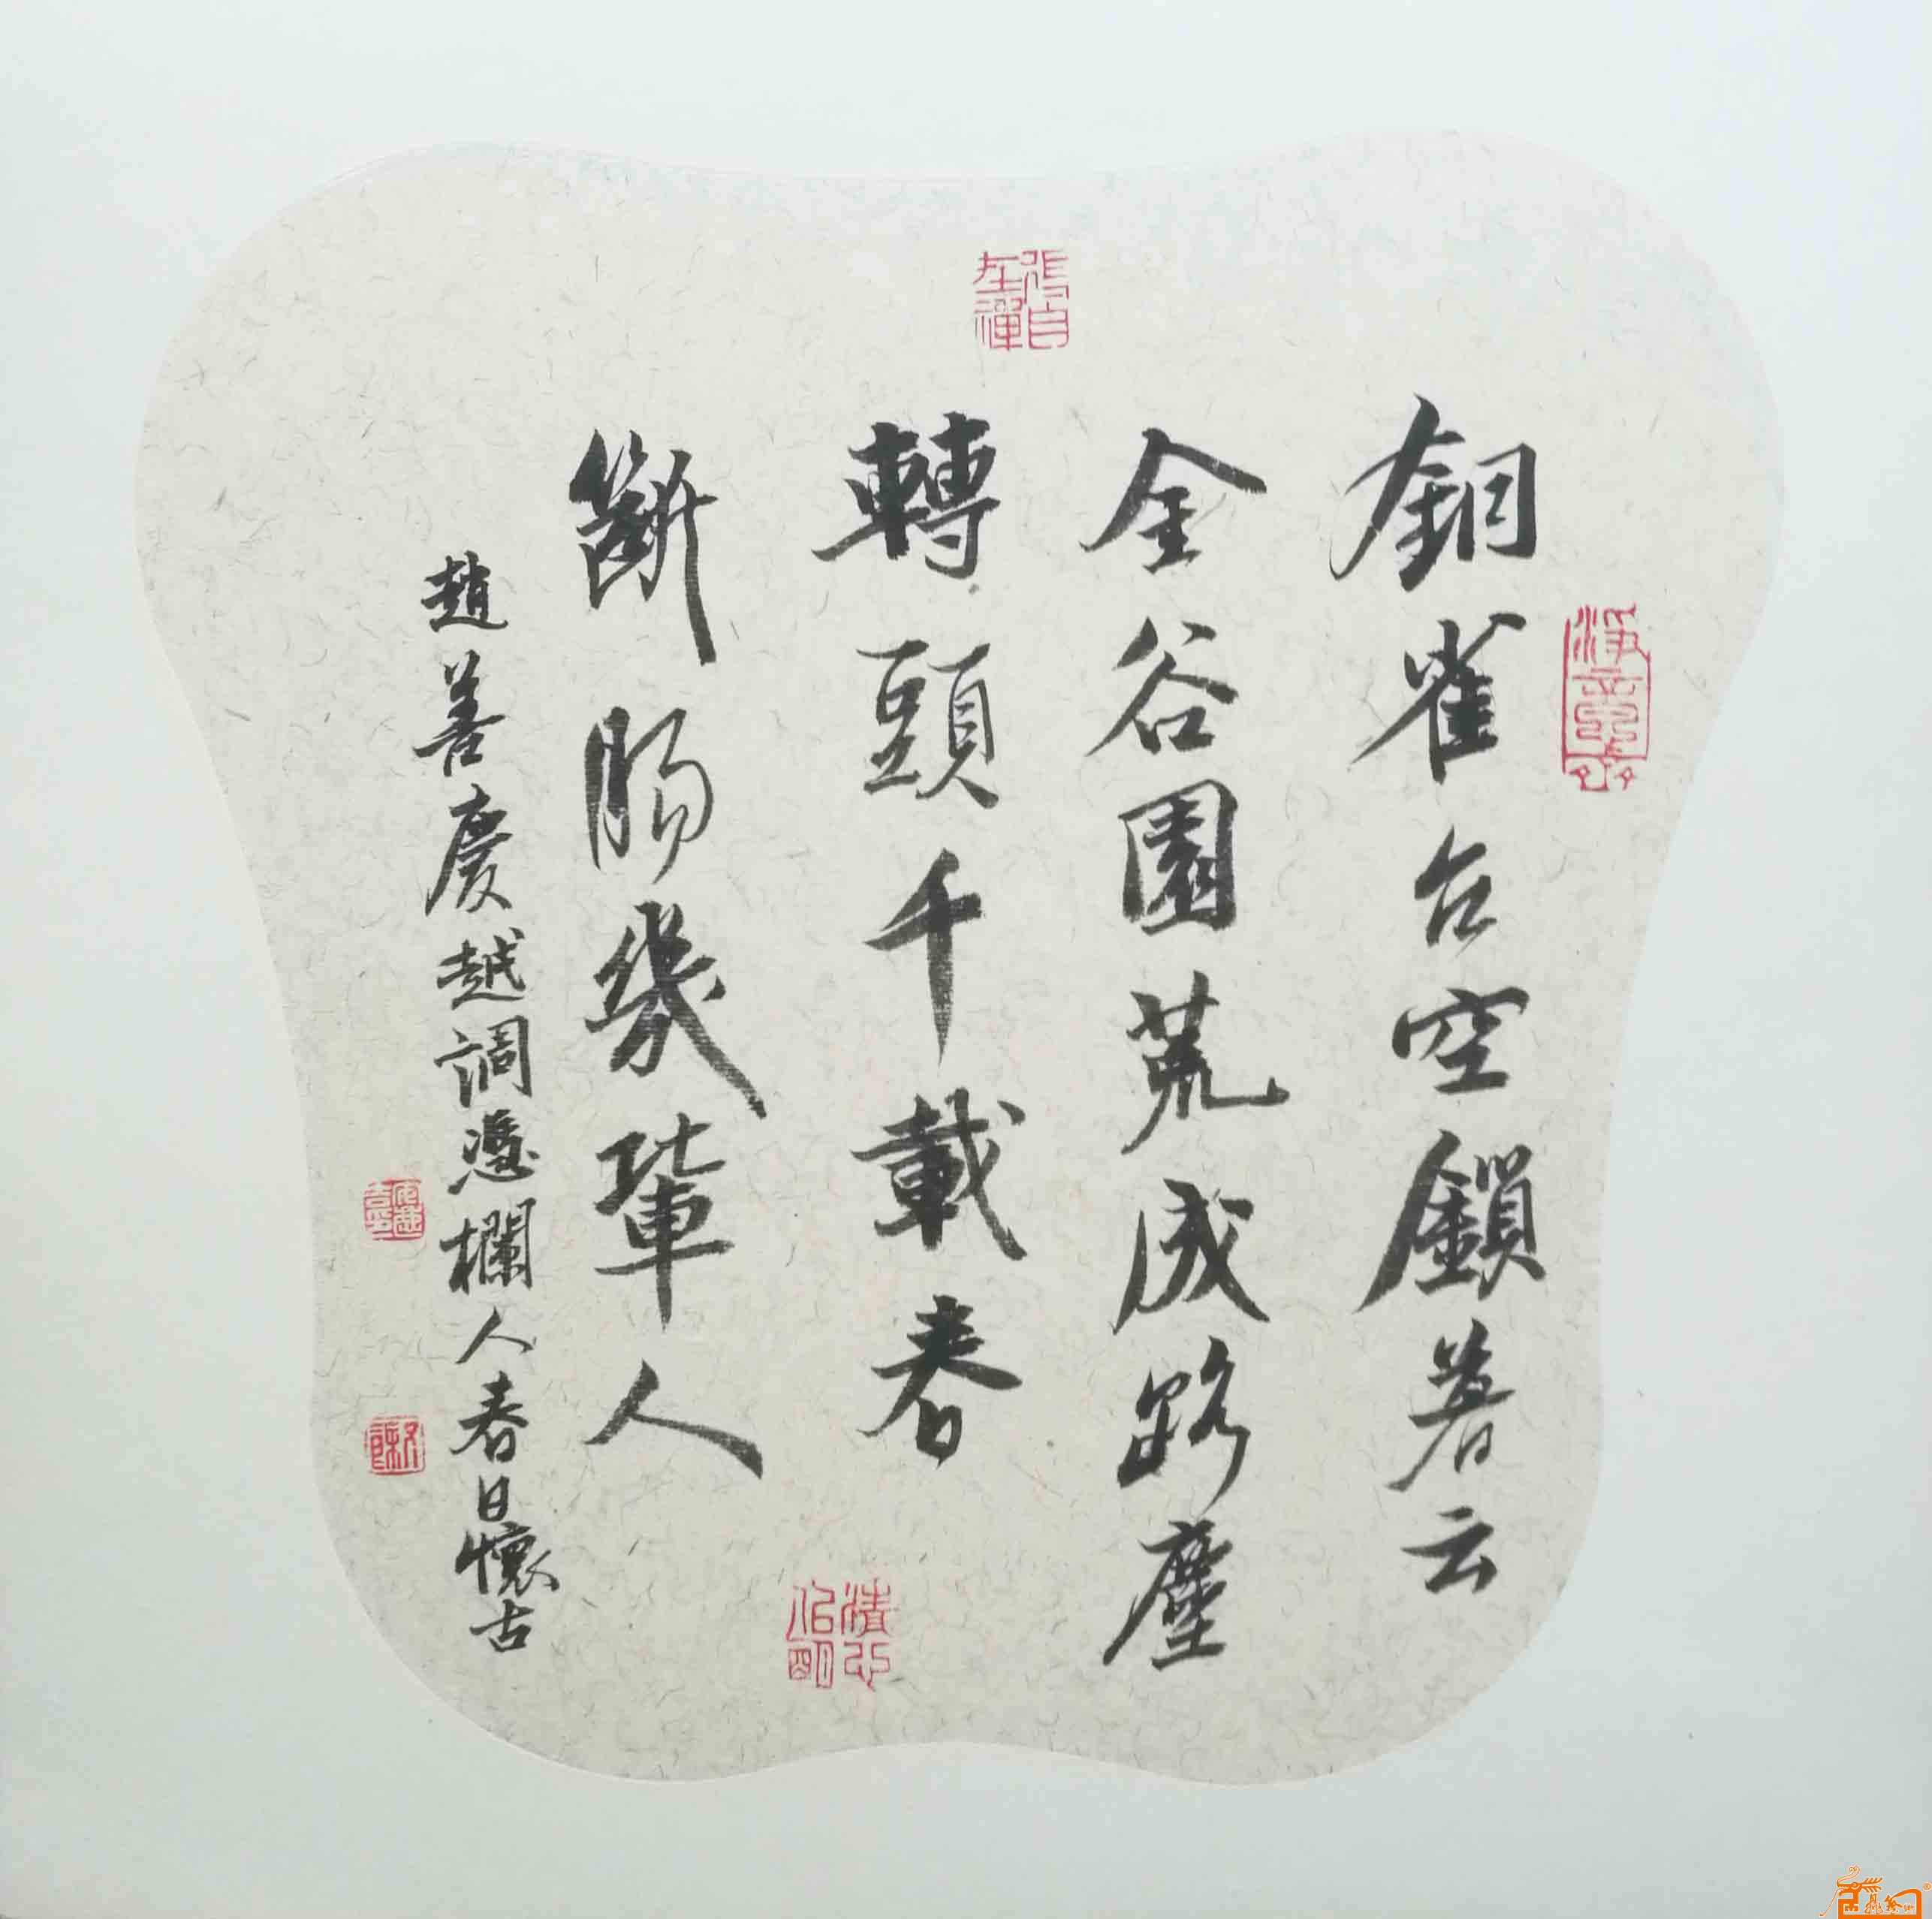 銅雀台空鎖暮云
金谷園荒成路塵
轉頭千載春
斷腸幾輩人
趙善慶越調憑欄人春日懷古